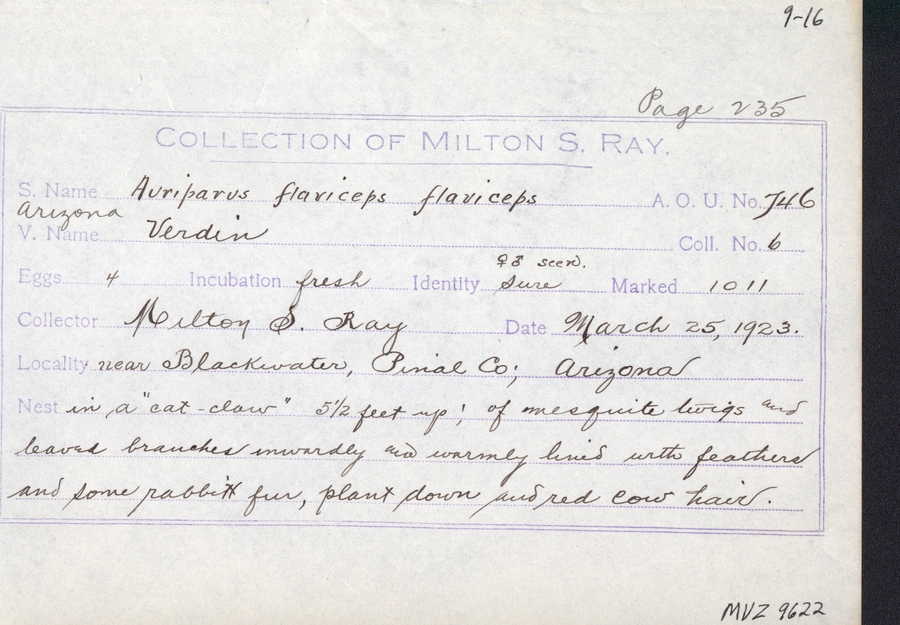 9-16
Page 235
COLLECTION OF MILTON S. RAY.
S. Name Auriparus flaviceps flaviceps A. O. U. No. 746
Arizona
V. Name Verdin Coll. No. 6
♀♂ seen.
Eggs 4 Incubation fresh Identity sure Marked 1011
Collector Milton S. Ray Date March 25, 1923.
Locality near Blackwater, Pinal Co; Arizona
Nest in a "cat-claw" 5½ feet up; of mesquite twigs and
leaved branches inwardly and warmly lined with feathers
and some rabbit fur, plant down and red cow hair.
MVZ 9622